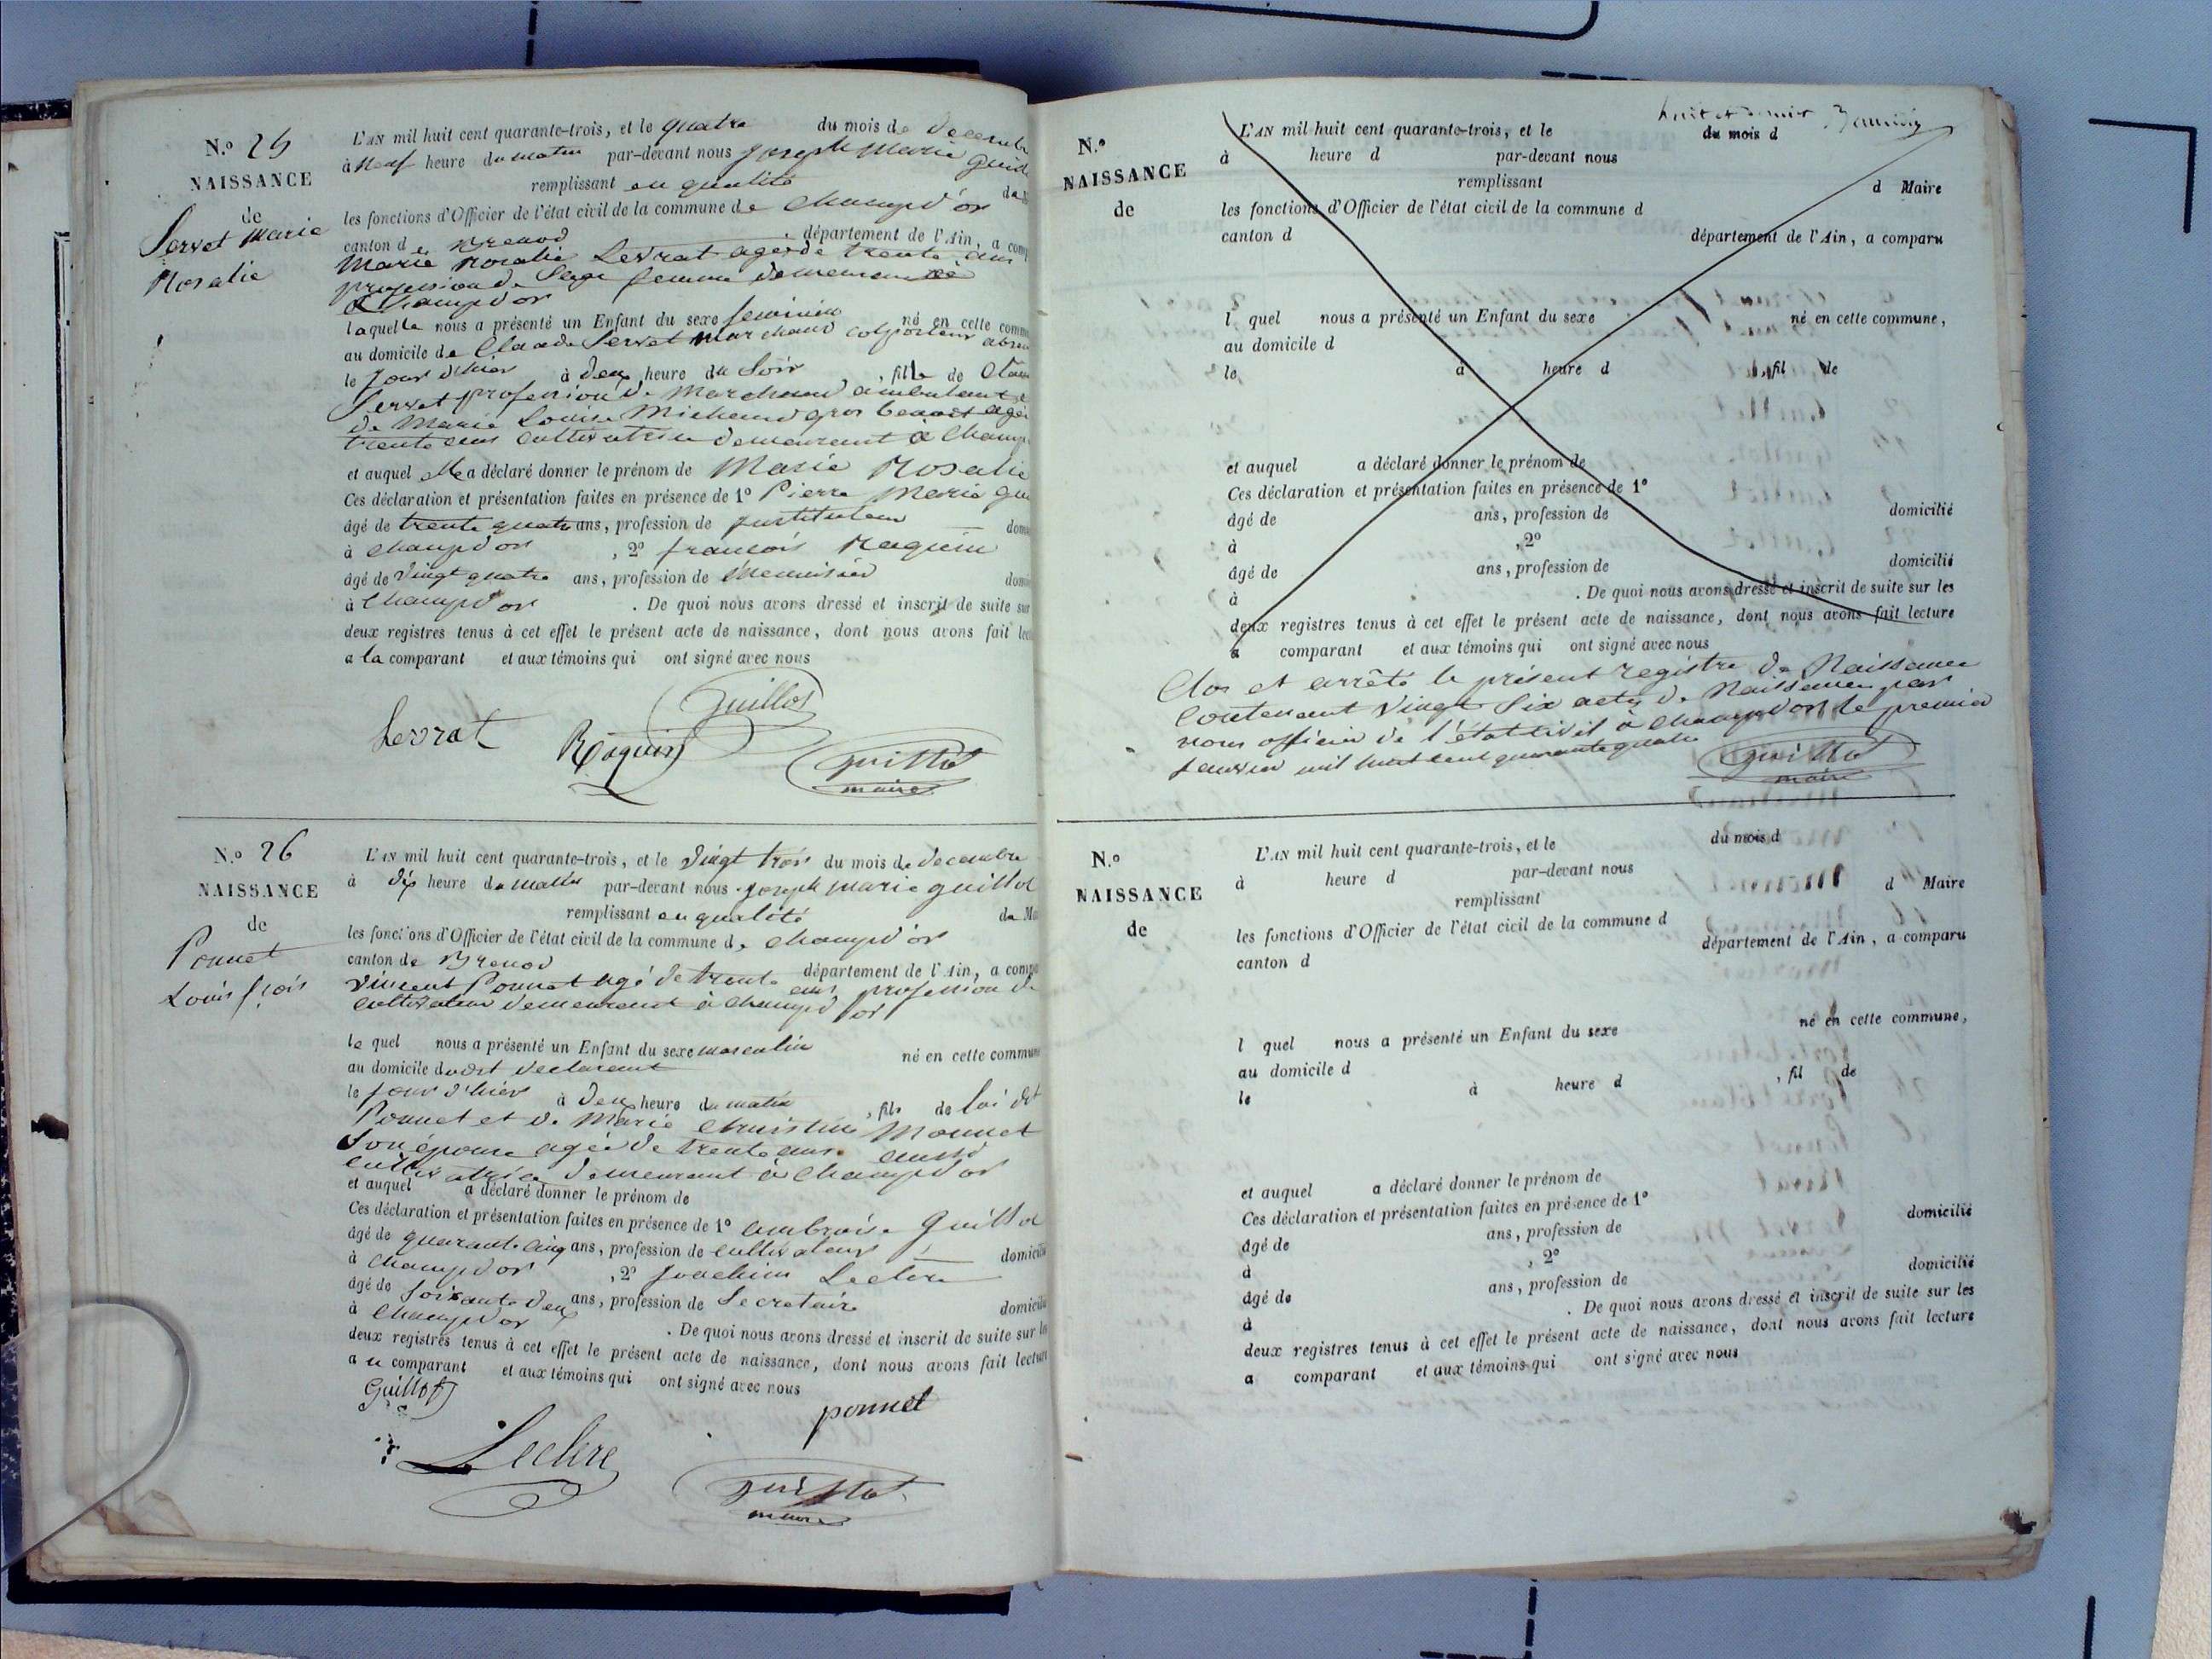 N.º 25
NAISSANCE
de
Servet Marie
Rosalie
L'AN mil huit cent quarante-trois, et le quatre du mois de decembre
à neuf heure du matin par-devant nous joseph Marie Guill
remplissant en qualité de
les fonctions d'Officier de l'état civil de la commune de Champd'or
canton de Brenod département de l'Ain, a comp
Marie Rosalie Levrat agée de trente ans
profession de Sage femme demeurant
à Champd'or
laquelle nous a présenté un Enfant du sexe feminin né en cette comm
au domicile de Claude Servet marchand colporteur absen
le jour d'hier à deux heure du soir , fille de Clau
Servet profession de Marchand ambulant e
de Marie Louise Michaud gros benoit agée
trente ans cultivatrice demeurant à Champ
et auquel elle a déclaré donner le prénom de Marie Rosalie
Ces déclaration et présentation faites en présence de 1º Pierre Marie gui
âgé de trente quatre ans, profession de instituteur domi
à Champd'or , 2º francois Raquin
âgé de vingt quatre ans, profession de Menuisier domi
à Champd'or . De quoi nous avons dressé et inscrit de suite sur
deux registres tenus à cet effet le présent acte de naissance, dont nous avons fait lec
a la comparant et aux témoins qui ont signé avec nous
Guillot
Levrat Raquin guillot
maire
N.º 26
NAISSANCE
de
Ponnet
Louis fçois
L'AN mil huit cent quarante-trois, et le vingt trois du mois de decembre
à dix heure du matin par-devant nous joseph marie guillot
remplissant en qualité de Ma
les fonctions d'Officier de l'état civil de la commune de Champd'or
canton de Brenod département de l'Ain, a compa
vincent Ponnet agé de trente ans profession de
cultivateur demeurant à champd'or
le quel nous a présenté un Enfant du sexe masculin né en cette commune
au domicile dudit declarant
le jour d'hier à deux heure du matin , fils de lui dit
Ponnet et de Marie Christine Monnet
son épouse agée de trente ans aussi
cultivatrice demeurant à Champd'or
et auquel a déclaré donner le prénom de
Ces déclaration et présentation faites en présence de 1º ambroise Guillot
âgé de quarante cinq ans, profession de cultivateur domicilié
à Champd'or , 2º joachim Leclere
âgé de soixante deux ans, profession de Secretaire domicilié
à Champd'or . De quoi nous avons dressé et inscrit de suite sur les
deux registres tenus à cet effet le présent acte de naissance, dont nous avons fait lecture
a u comparant et aux témoins qui ont signé avec nous
Guillot ponnet
Leclere guillot
maire
N.º
NAISSANCE
de
L'AN mil huit cent quarante-trois, et le du mois d
à heure d par-devant nous
remplissant d Maire
les fonctions d'Officier de l'état civil de la commune d
canton d département de l'Ain, a comparu
l quel nous a présenté un Enfant du sexe né en cette commune,
au domicile d
le à heure d , fil de
et auquel a déclaré donner le prénom de
Ces déclaration et présentation faites en présence de 1º
âgé de ans, profession de domicilié
à , 2º
âgé de ans, profession de domicilié
à . De quoi nous avons dressé et inscrit de suite sur les
deux registres tenus à cet effet le présent acte de naissance, dont nous avons fait lecture
a comparant et aux témoins qui ont signé avec nous
Clos et arrêté le présent registre de Naissance
Contenant vingt six actes de Naissance par
nous officier de l'état civil à Champd'or le premier
janvier mil huit cent quarante quatre
guillot
maire
N.º
NAISSANCE
de
L'AN mil huit cent quarante-trois, et le du mois d
à heure d par-devant nous
remplissant d Maire
les fonctions d'Officier de l'état civil de la commune d
canton d département de l'Ain, a comparu
l quel nous a présenté un Enfant du sexe né en cette commune,
au domicile d
le à heure d , fil de
et auquel a déclaré donner le prénom de
Ces déclaration et présentation faites en présence de 1º
âgé de ans, profession de domicilié
à , 2º
âgé de ans, profession de domicilié
à . De quoi nous avons dressé et inscrit de suite sur les
deux registres tenus à cet effet le présent acte de naissance, dont nous avons fait lecture
a comparant et aux témoins qui ont signé avec nous